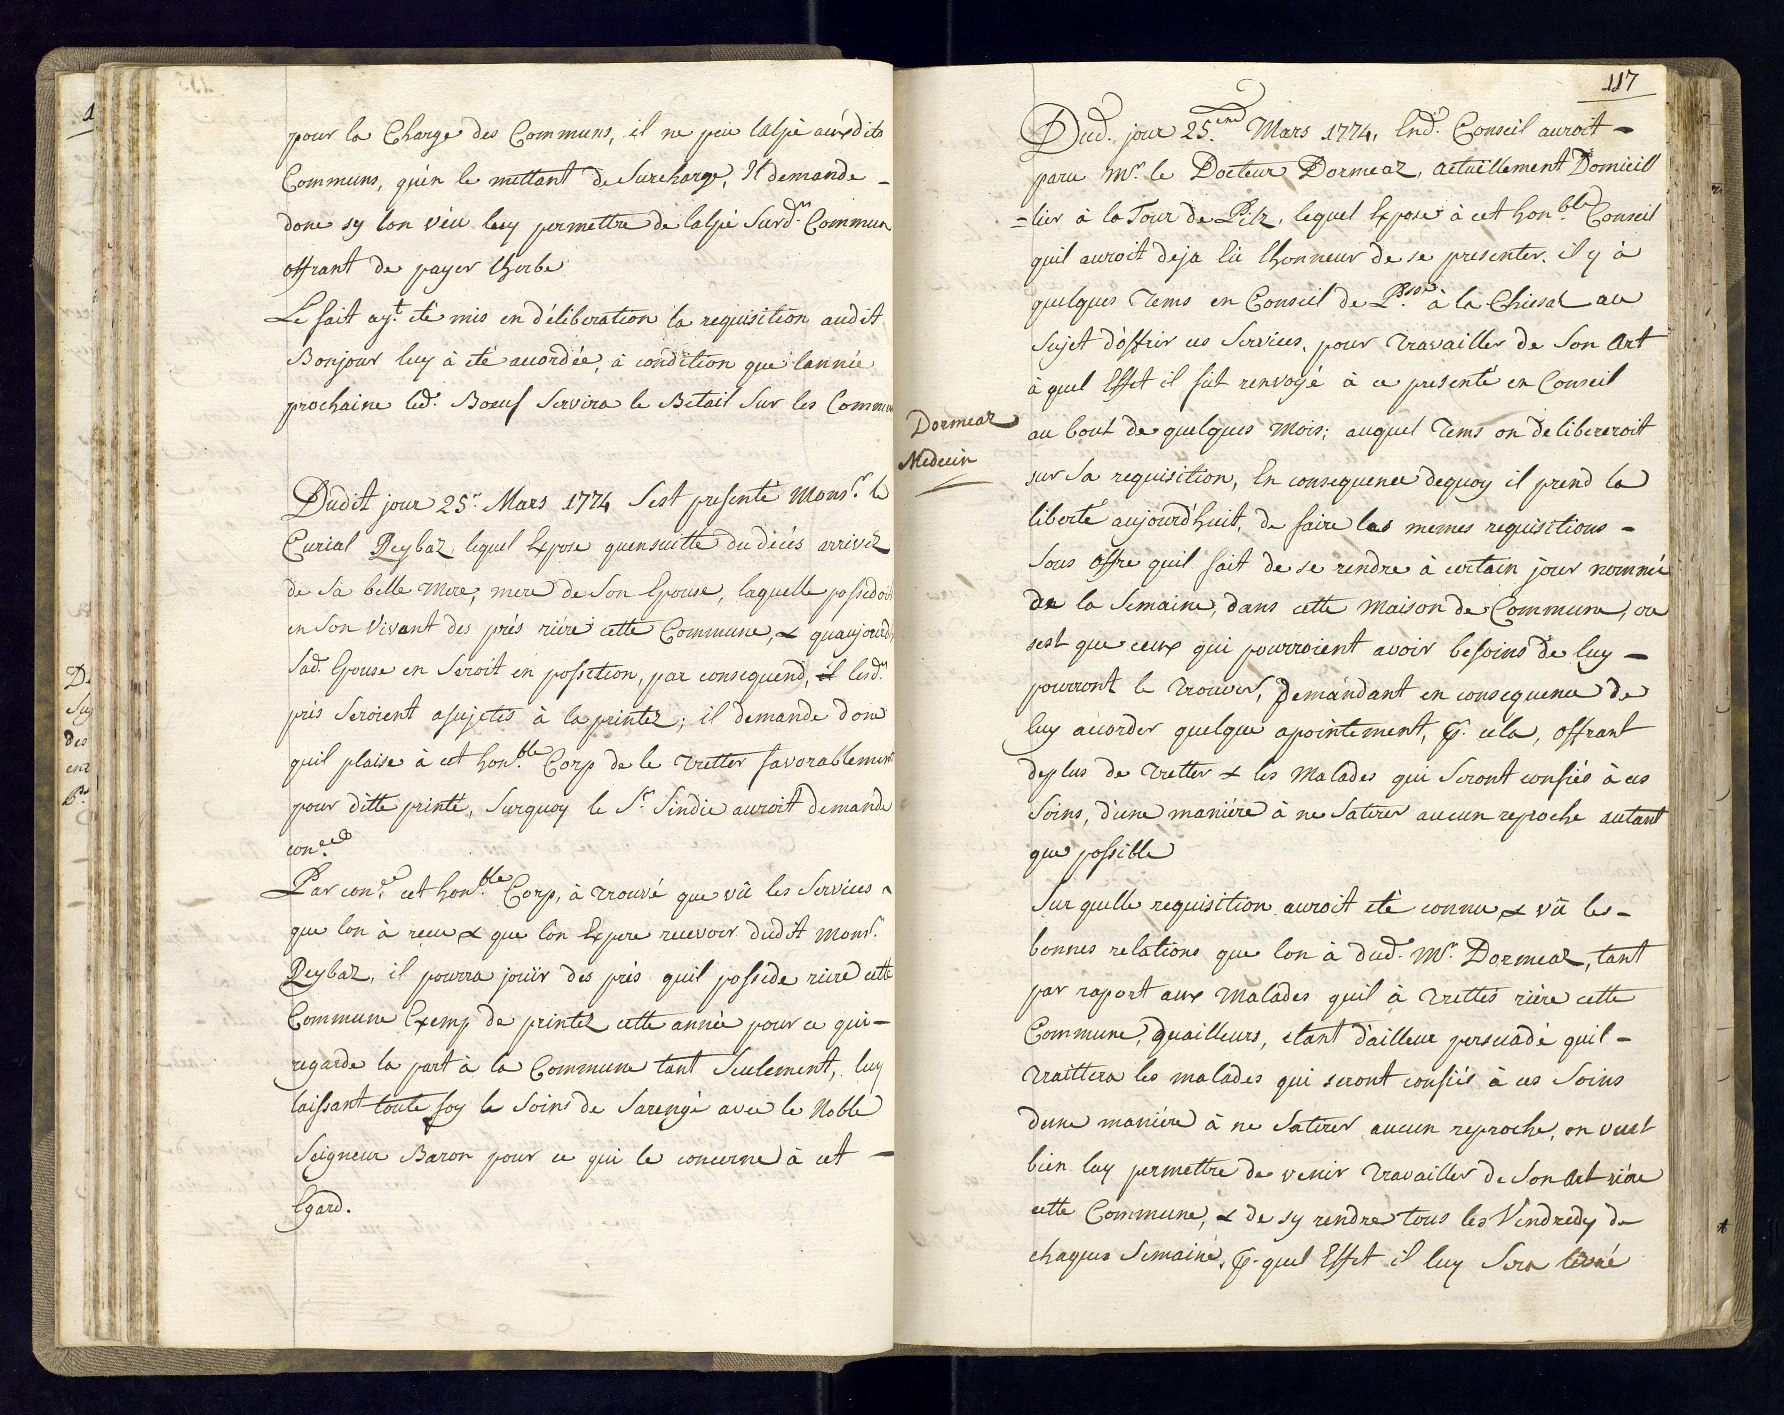 pour la Charge des Communs, il ne peu lalpé auxdits
Communs, qu'en le mettant de Surcharge, Il demande -
donc sy lon véu luy permettre de lalpé Surd.ts Commun
offrant de payer lherbe
Le fait ay.t eté mis en déliberation la requisition audit
Bonjour luy à eté acordée, à condition que lannée
prochaine led.t Boeuf Servira le Betail Sur les Commun
Dudit jour 25.e Mars 1774 Sest presenté Mons.r le
Curial Peybaz, lequel Expose quensuitte du décés arrivéz
de Sa belle Mere, mere de Son Epouse, laquelle possedoit
en Son Vivant des prés riére cette Commune, & quaujourd
Sad.e Epouse en Seroit en possetion, par consequend, lesd.ts
prés Seroient asujetés à la printéz; il demande donc
quil plaise à cet hon.ble Corp de le tretter favorablement
pour ditte printé, Surquoy le S.r Sindic auroit demandé
con.ce
Par con.ce cet hon.ble Corp, à trouvé que vû les Services -
que lon à recu & que lon Espere recevoir dudit Mons.r
Peybaz, il pourra jouïr des prés quil possede riére cette
Commune Exemp de printéz cette année pour ce qui -
regarde la part à la Commune tant Seulement, luy
laissant toute foy le Soins de Sarengé avec le Noble
Seigneur Baron pour ce qui le concerne à cet -
Egard.
117
Dud.t jour 25.me Mars 1774, End.t Conseil auroit -
paru M.r le Docteur Dormeaz, actuëllement Domicill
=lier à la Tour de Pilz, lequel Expose à cet hon.ble Conseil
quil auroit deja Eu lhonneur de se presenter il y à
quelques Tems en Conseil de P.sse à la Chiesaz au
Sujet d'offrir ces Services, pour Travailler de Son Art
à quel Effet il fut renvoyé à ce presenté en Conseil
Dormeaz
Medecin
au bout de quelques Mois; auquel Tems on delibereroit
sur Sa requisition, En consequence dequoy il prend la
liberté aujourd'huit, de faire les memes requisitions -
Sous Offre quil fait de se rendre à certain jour nommé
de la Semaine, dans cette Maison de Commune, ou
sest que ceux qui pourroient avoir besoins de luy -
pourront le Trouver, Demandant en consequence de
luy acorder quelque apointement, p.r cela, offrant
deplus de Tretter & les Malades qui Seront confiés à ces
Soins, d'une maniére à ne Satirer aucun reproche autant
que possible
Sur quelle requisition auroit eté connu & vû les -
bonnes relations que lon à dud.t M.r Dormeaz, tant
par raport aux Malades quil à Trettés riére cette
Commune, quailleurs, etant d'ailleur persuadé quil -
Traittera les malades qui seront confiés à ces Soins
dune maniére à ne Satirer aucun reproche, on veut
bien luy permettre de venir Travailler de Son Art riére
cette Commune, & de sy rendre tous les Vendredy de
chaques Semaine, p.r quel Effet il luy Sera livré